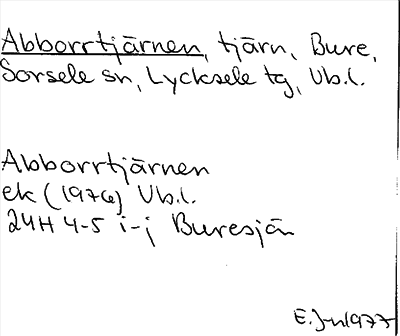 Abborrtjärnen, tjärn, Bure,
Sorsele sn, Lycksele tg, Vb.l.
Abborrtjärnen
ek (1976) Vb.l.
24H 4-5 i-j Buresjön
E. 1977